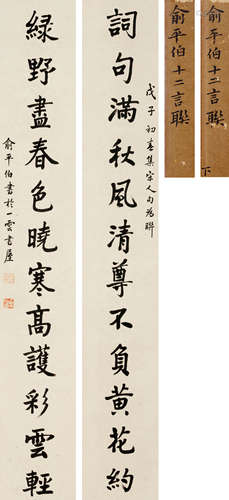 俞平伯十二言聯
俞平伯十二言聯 下
戊子初春集宋人句為聯
詞句滿秋風清尊不負黃花約
綠野盡春色曉寒高護彩雲輕
俞平伯書於一雲書屋